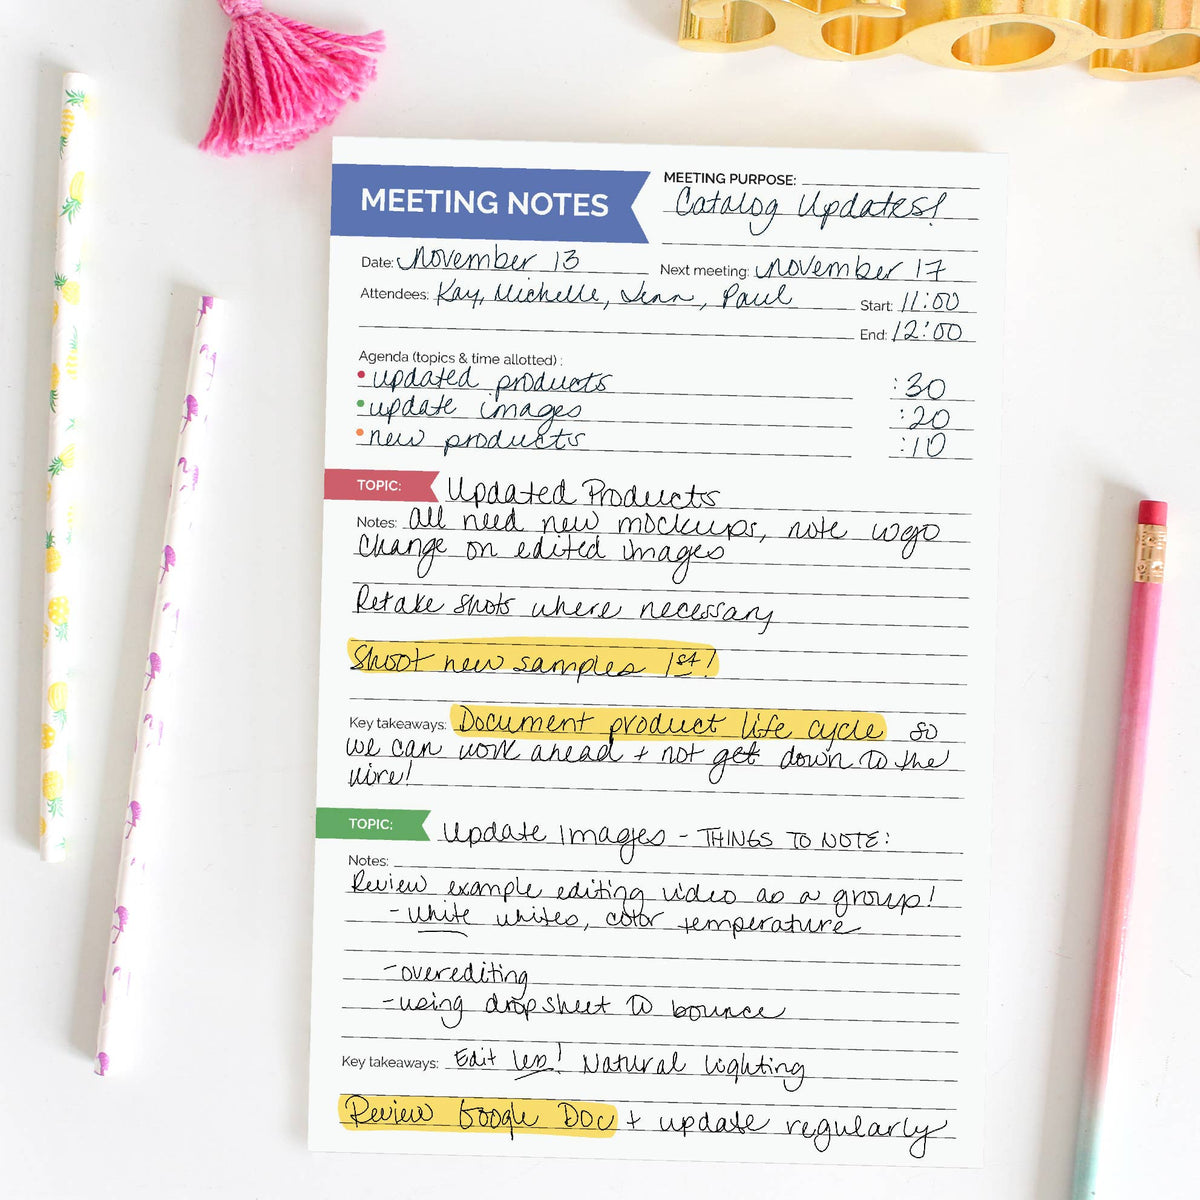 MEETING NOTES
MEETING PURPOSE:
Catalog Updates!
Date: November 13
Next meeting: November 17
Attendees: Kay, Michelle, Jenn, Paul
Start: 11:00
End: 12:00
Agenda (topics & time allotted) :
• updated products :30
• update images :20
• new products :10
TOPIC: Updated Products
Notes: all need new mockups, note logo
change on edited images
Retake shots where necessary
Shoot new samples 1st!
Key takeaways: Document product life cycle so
we can work ahead + not get down to the
wire!
TOPIC: Update Images - THINGS TO NOTE:
Notes:
Review example editing video as a group!
- white whites, color temperature
- overediting
- using drop sheet to bounce
Key takeaways: Edit less! Natural lighting
Review Google Doc + update regularly